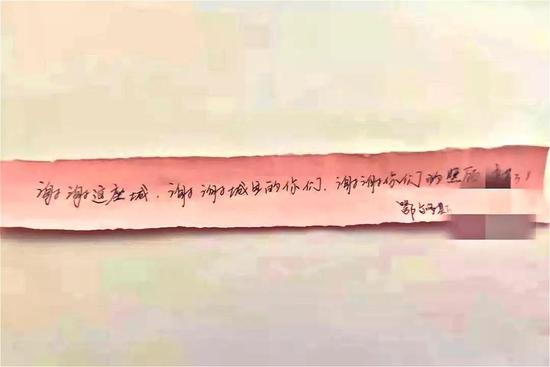 谢谢这座城，谢谢城里的你们，谢谢你们的照顾
鄂尔多斯